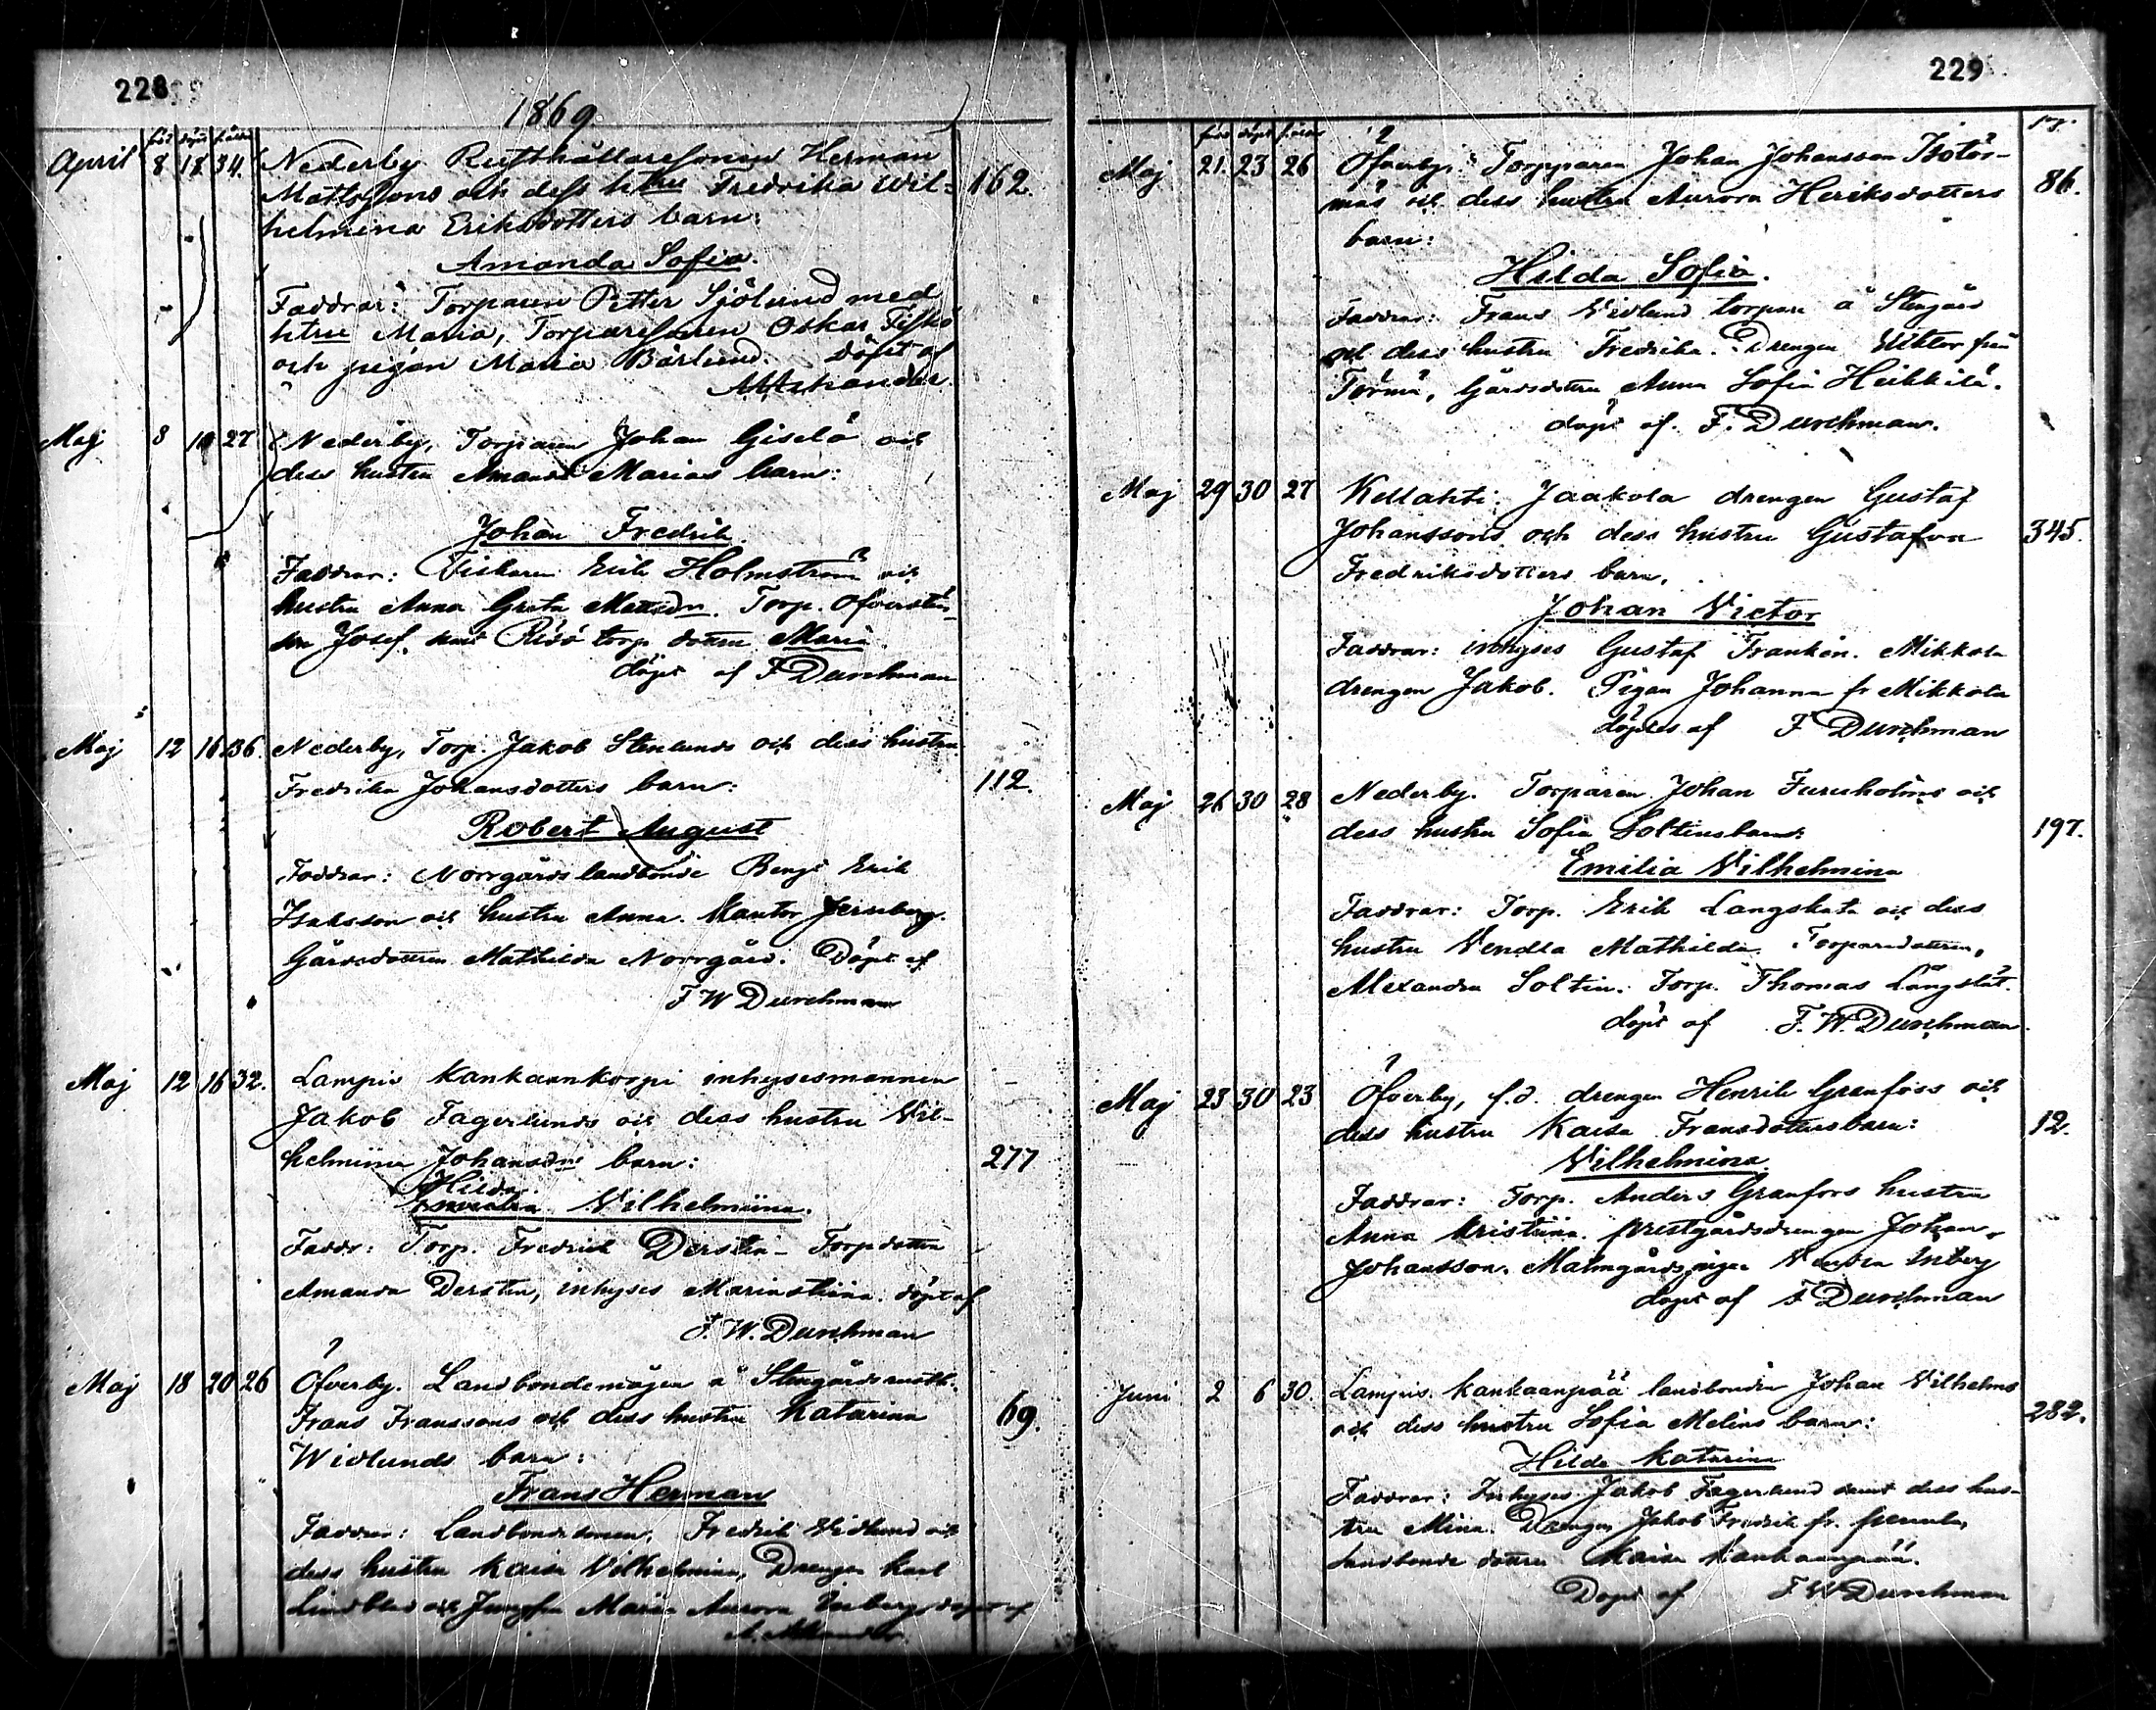 228
1869
föd döpt f. ålder
April 8 18 34. Nederby Rusthållaresonen Herman
Mattssons och dess htru Fredrika Wil- 162
helmina Eriksdotters barn:
Amanda Sofia.
Faddrar: Torparen Petter Sjölund med
htru Maria, Torparesonen Oskar
och pigan Maria Bärlund. döpt af
Maj 8 27 Nederby, Torparen Johan Giselö och
dess hustru Amanda Marias barn:
Johan Fredrik.
Faddrar: Erik Holmström och
hustru Anna Greta Torp.
Josef, samt Risö torp. dottern Maria.
döpt af F Durchman
Maj 12 16 36. Nederby, Torp. Jakob Stenlunds och dess hustru
Fredrika Johansdotters barn: 112.
Robert August
Faddrar: Norrgårds landbonde Bengt Erik
Isaksson och hustru Anna. Kantor Jernberg.
Gårdsdottren Mathilda Norrgård. Döpt af
F W Durchman
Maj 12 16 32. Lampis Kankaankorpi inhysesmannen
Jakob Fagerlunds och dess hustru Vil-
helmina Johansdrs barn: 277
Hilda
Vilhelmiina.
Faddr: Torp. Fredrik Dersten Torpdottern
Amanda Dersten, inhyses Mariastiina. döpt af
F. W. Durchman
Maj 18 20 26 Öfverby. Landbondemågen å Stengårds
Frans Franssons och dess hustru Katarina 69.
Widlunds barn:
Frans Herman
Faddrar: Landbondesonen, Fredrik Vidlund och
dess hustru Kaisa Vilhelmina, Drengen Karl
Lindblad och Jungfru Maria Aurora Inberg döpt af
229
föd döpt f. ålder pag.
Maj 21. 23 26 Öfverby. Torpparen Johan Johansson Isotör-
mäs och dess hustru Aurora Heriksdotters 86.
barn:
Hilda Sofia.
Faddrar: Frans Vidlund torpare å Stengård
och dess hustru Fredrika. Drengen Viktor från
Törmä, Gårdsdottren Anna Sofia Heikkilä.
döpt af. F. Durchman.
Maj 29 30 27 Kellahti. Jaakola drengen Gustaf
Johanssons och dess hustru Gustafva 345.
Fredriksdotters barn.
Johan Victor
Faddrar: inhyses Gustaf Frankén. Mikkola
drengen Jakob. Pigan Johanna fr Mikkola
döptes af F Durchman
Maj 26 30 28 Nederby. Torparen Johan Furuholms och
dess hustru Sofia Soltins barn: 197.
Emilia Vilhelmina
Faddrar: Torp. Erik Langskata och dess
hustru Vendla Mathilda. Torparedottren,
Alexandra Soltin. Torp. Thomas Långslät.
döpt af F. W. Durchman.
Maj 23 30 23 Öfverby, f.d. drengen Henrik Granfoss och
dess hustru Kaisa Fransdotters barn: 12.
Vilhelmina
Faddrar: Torp. Anders Granfors hustru
Anna Kristiina. prestgårdsdrengen Johan
Johansson. Malmgårds pigan Vendla Inberg
döpt af F Durchman
Juni 2 6 30. Lampis. Kankaanpää landbonden Johan Vilhelms
och dess hustru Sofia Melins barn: 282.
Hilda Katarina
Faddrar: Inhyses Jakob Fagerlund samt dess hus-
tru Mina. Drengen Jakob Fredrik fr.
Landbonde dottren Maria Kankaanpää.
Döpt af F W Durchman